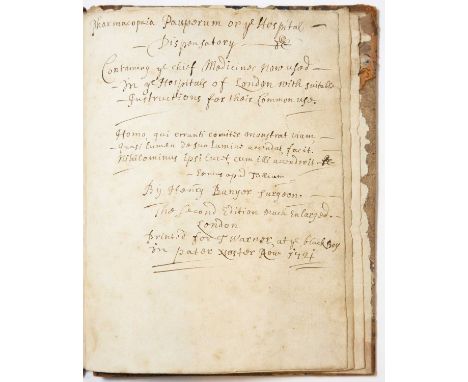 Pharmacopœia Pauperum or ye Hospital
Dispensatory
Containing ye chief Medicines Now used
in ye Hospitals of London with suitable
Instructions for their Common use.
Homo, qui erranti comiter monstrat viam
quasi lumen de suo lumine accendat facit.
Nihilominus ipsi lucet cum illi accenderit
Ennius apud
By Henry Banyer Surgeon
The Second Edition much Enlarged
London
printed for T Warner at ye black Boy
in pater Noster Row 1721